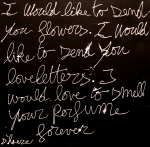 I Would like to Send
you flowers. I Would
like to Send You
love letters. I
would love to smell
your Perfume
forever